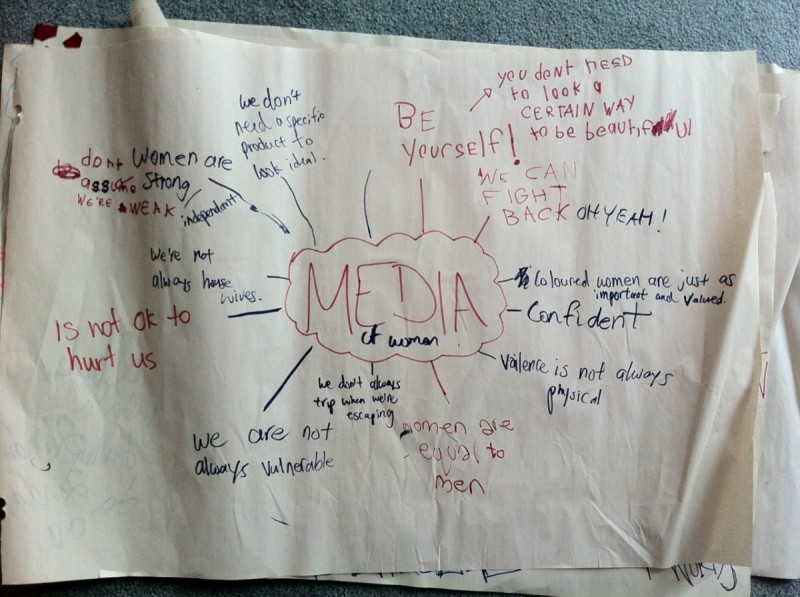 we don't
need a specific
product to
look ideal.
BE
yourself!
you dont NEED
to look a
CERTAIN WAY
to be beautiful
WE CAN
FIGHT
BACK OH YEAH!
dont
assume
WE'RE WEAK
women are
strong
independent
we're not
always house
wives.
is not ok to
hurt us
MEDIA
of women
Coloured women are just as
important and valued.
Confident
Valence is not always
physical
we don't always
trip when we're
escaping
we are not
always vulnerable
women are
equal to
men